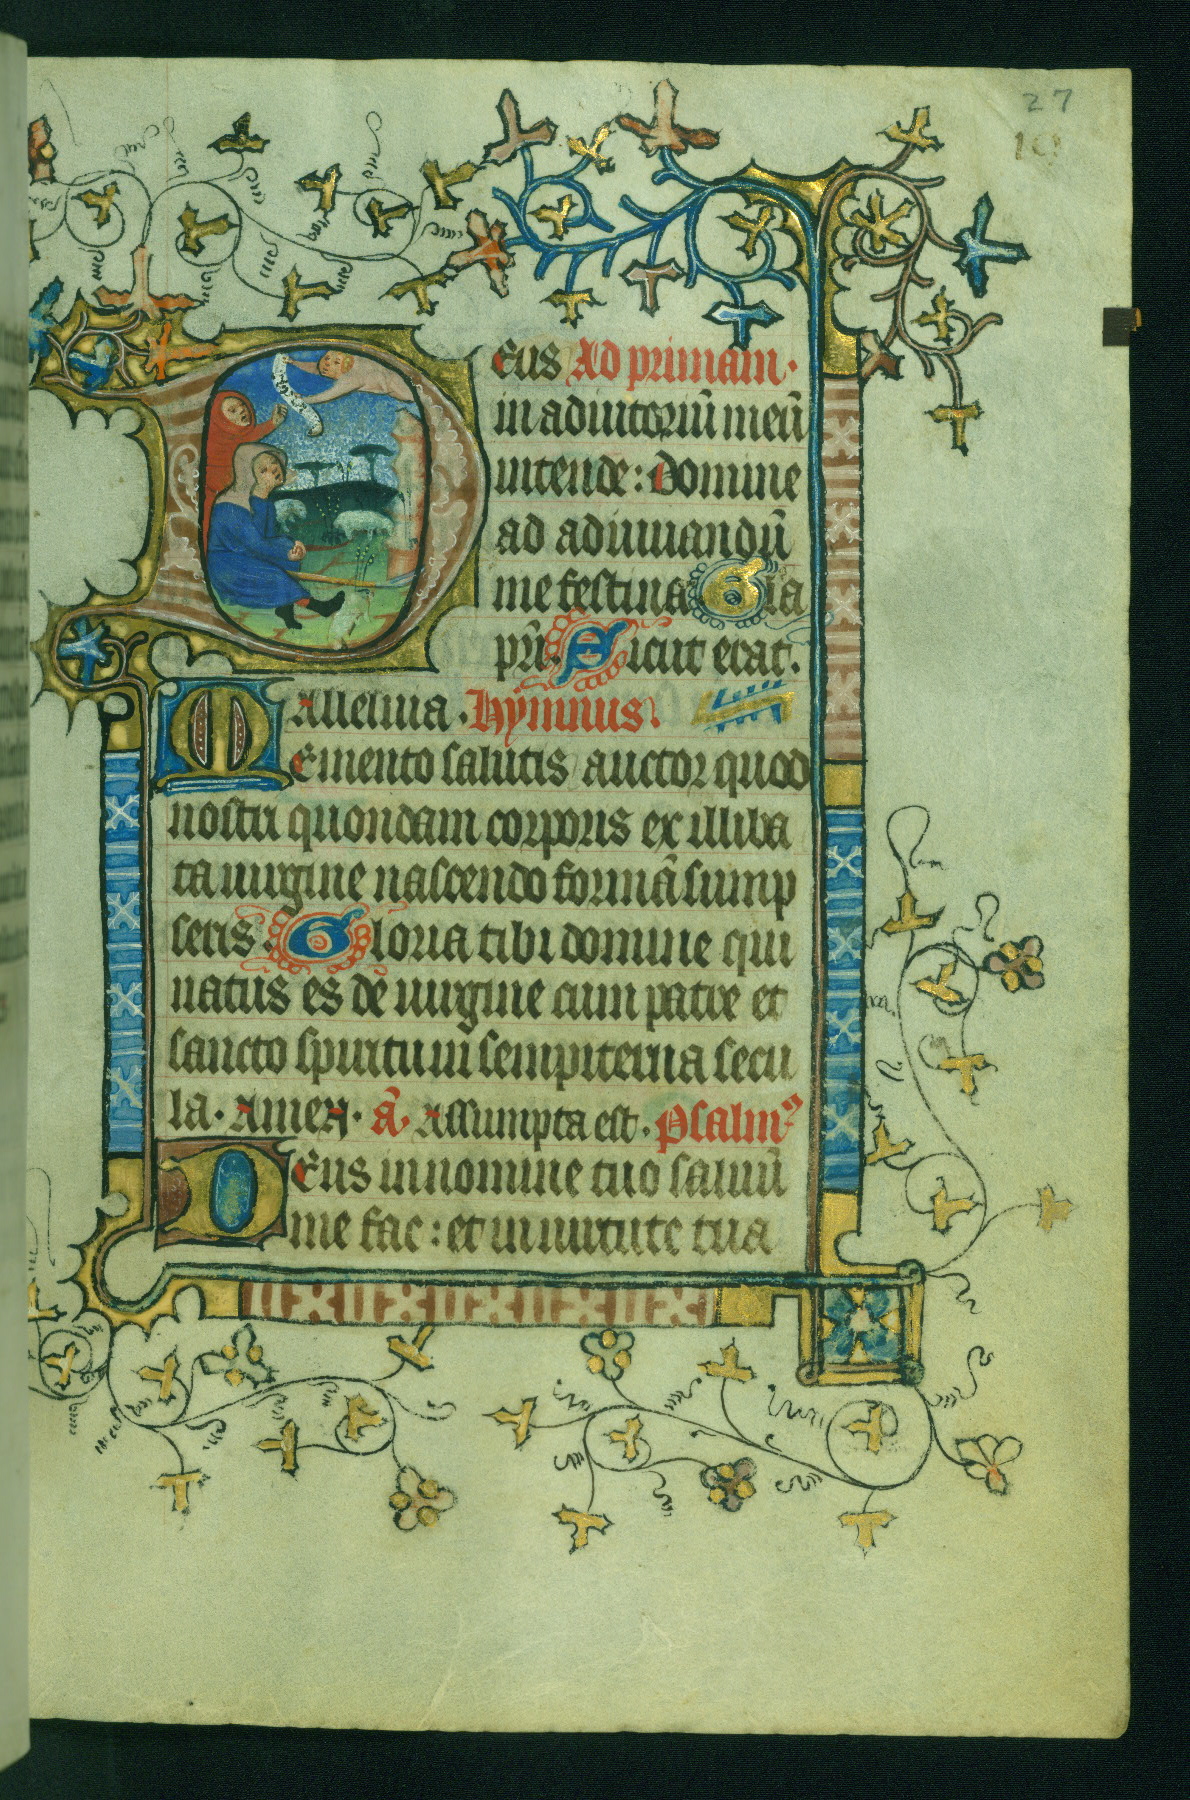 27
19
Eus Ad primam.
in adiutoriū meū
intende: domine
ad adiuuandū
me festina Gla
pr̄i. Sicut erat.
Alleluia. Hymnus.
Memento salutis auctor quod
nostri quondam corporis ex illiba
ta uirgine nascendo formā sump
seris. Gloria tibi domine qui
natus es de uirgine cum patre et
sancto spiritu in sempiterna secu
la. Amen. ā. Assumpta est. Psalmꝰ
Deus in nomine tuo saluū
me fac: et in uirtute tua